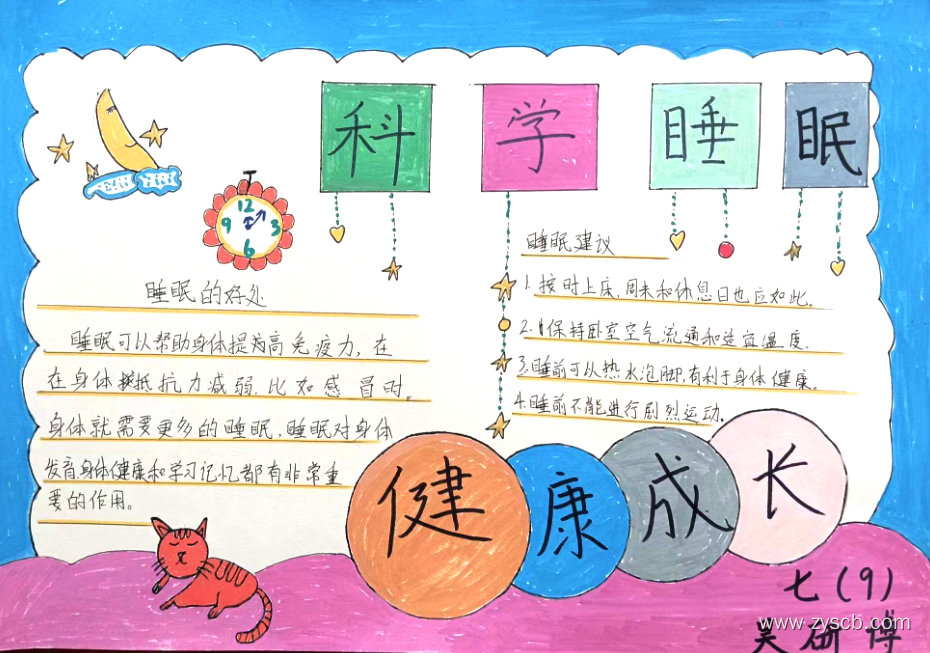 科学睡眠
12
3
6
9
睡眠的好处
睡眠可以帮助身体提高免疫力，在
在身体抵抗力减弱.比如感冒时。
身体就需要更多的睡眠，睡眠对身体
发育身体健康和学习记忆都有非常重
要的作用。
睡眠建议
1. 按时上床，周末和休息日也应如此。
2. 保持卧室空气流通和适宜温度.
3.睡前可以热水泡脚,有利于身体健康。
4.睡前不能进行剧烈运动。
健康成长
七(9)
吴研博
www.zyscb.com